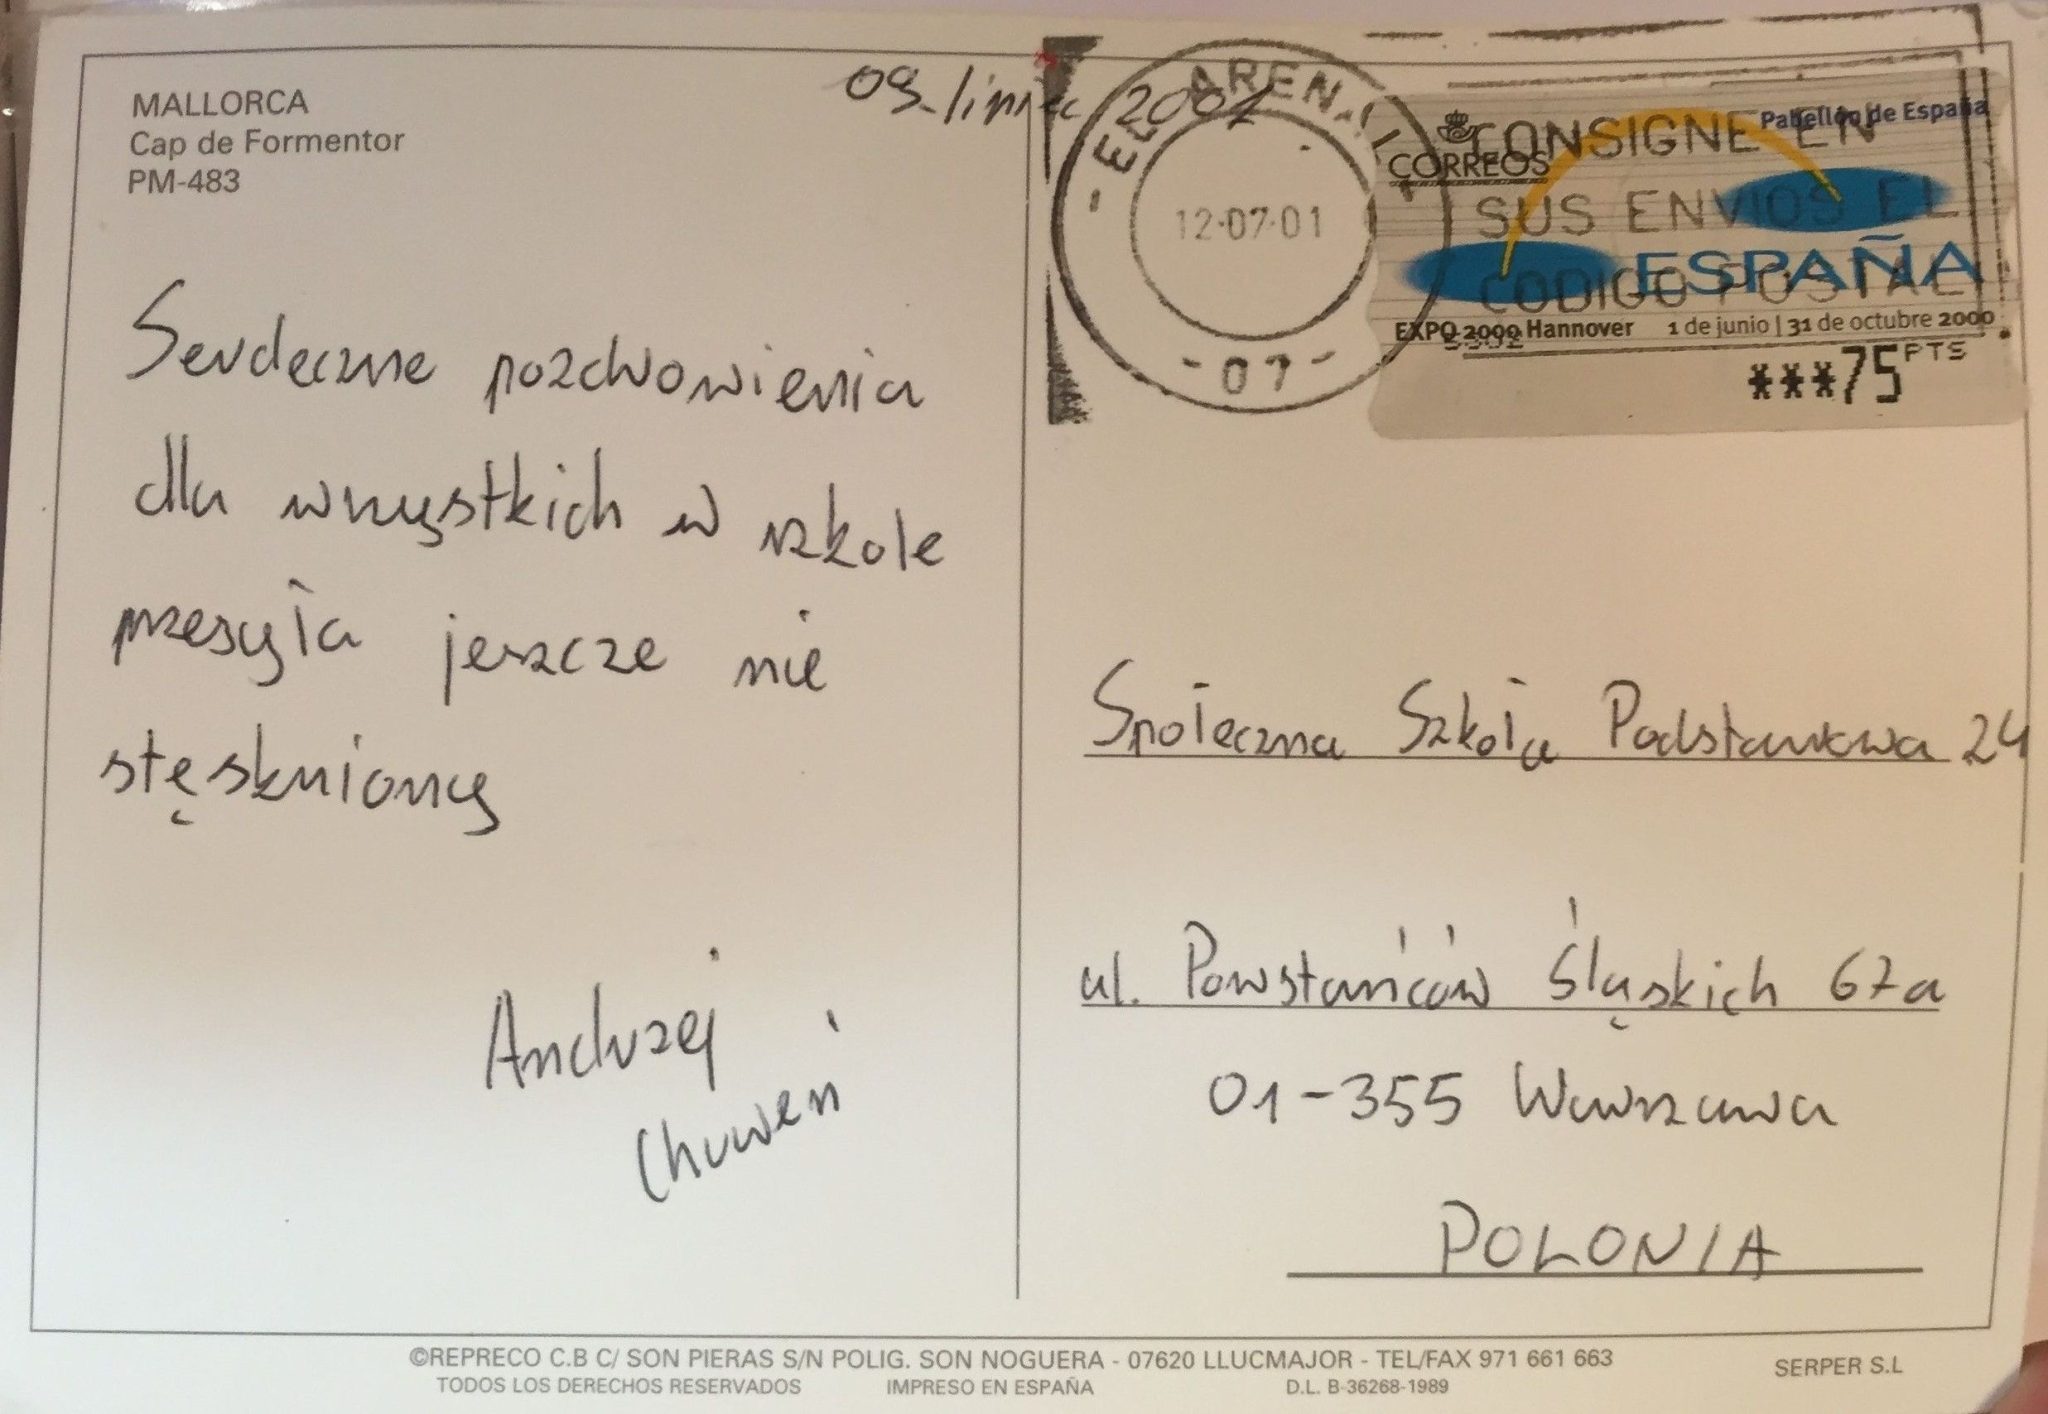 MALLORCA
Cap de Formentor
PM-483
09 lipiec 2001
Serdeczne pozdrowienia
dla wszystkich w szkole
przesyła jeszcze nie
stęskniony
Andrzej
Chuweń
- EL ARENAL -
12-07-01
- 07 -
CONSIGNE EN
SUS ENVIOS EL
CODIGO POSTAL
CORREOS
Pabellón de España
ESPAÑA
EXPO 2000 Hannover 1 de junio | 31 de octubre 2000
***75 PTS
Społeczna Szkoła Podstawowa 24
ul. Powstańców Śląskich 67a
01-355 Warszawa
POLONIA
©REPRECO C.B C/ SON PIERAS S/N POLIG. SON NOGUERA - 07620 LLUCMAJOR - TEL/FAX 971 661 663
TODOS LOS DERECHOS RESERVADOS IMPRESO EN ESPAÑA D.L. B-36268-1989
SERPER S.L